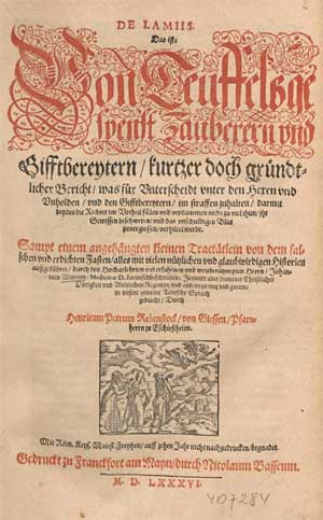 DE LAMIIS.
Das ist:
Von Teuffelsge
spenst Zauberern und
Gifftbereytern / kurtzer doch gründt-
licher Bericht / was für Unterscheidt unter den Hexen und
Unholden / und den Gifftbereytern / im straffen zuhalten / darmit
beydes die Richter im Urtheil fällen und verdammen nicht zu viel thun / ihr
Gewissen beschweren / und das unschuldige Blut
zuvergiessen / verhütet werde.
Sampt einem angehängten kleinen Tractätlein von dem fal-
schen und erdichten Fasten / alles mit vielen nützlichen und glaubwirdigen Historien
durch den Hochgelehrten viel erfahrnen und weitberühmpten Herrn / Johan-
nem
in unsere gemeine Teutsche Sprach
gebracht / Durch
Henricum Petrum Rebenstock / von Giessen / Pfar-
herrn zu Eschersheim.
Mit Röm. Keys. Maiest. Freyheit / auff zehen Jahr nicht nachzudrucken / begnadet.
Gedruckt zu Franckfort am Mayn / durch Nicolaum Basseum.
M. D. LXXXVI.
407284